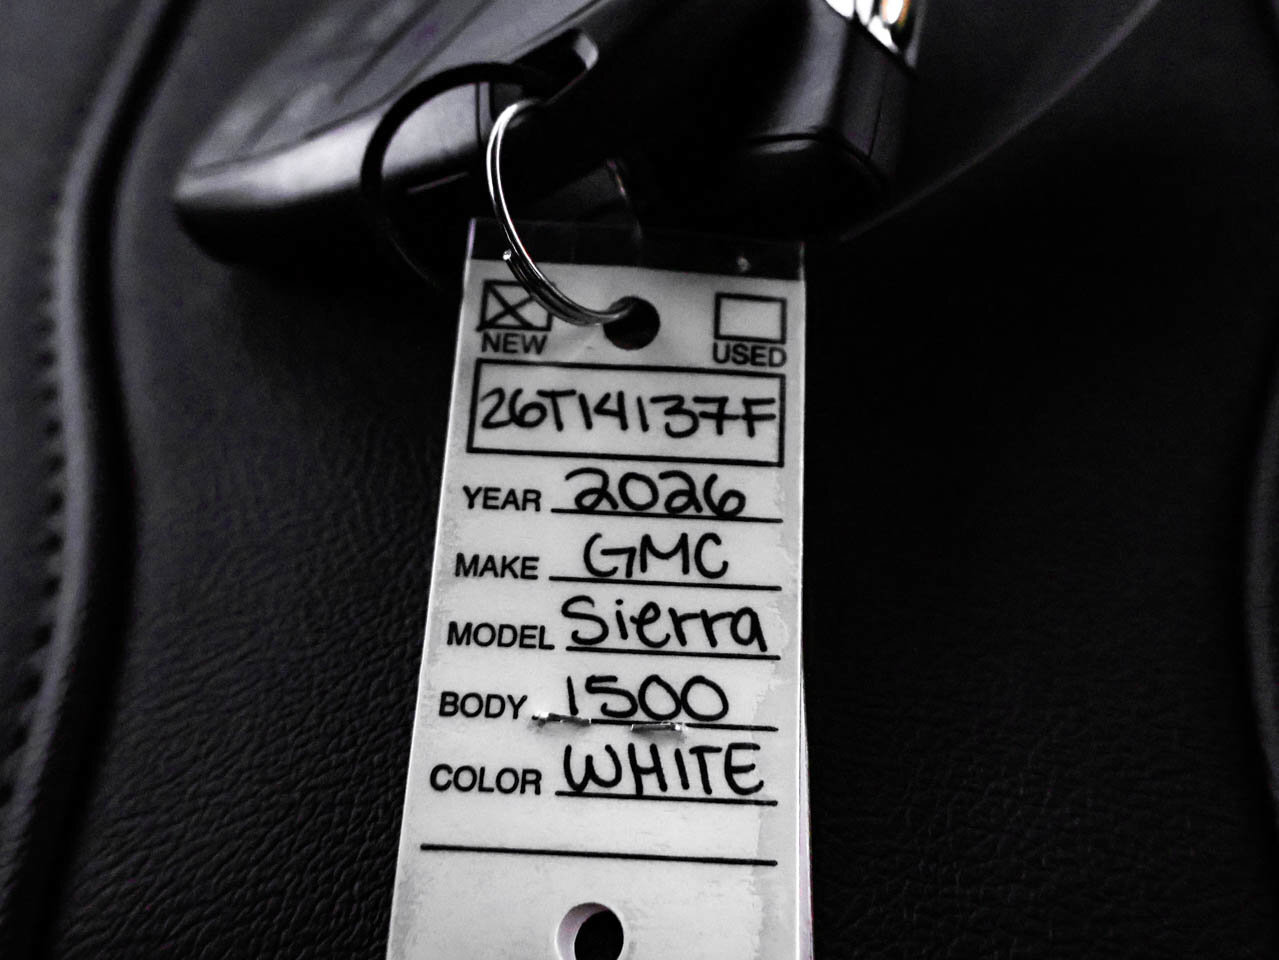 NEW USED
26T14137F
YEAR 2026
MAKE GMC
MODEL Sierra
BODY 1500
COLOR WHITE